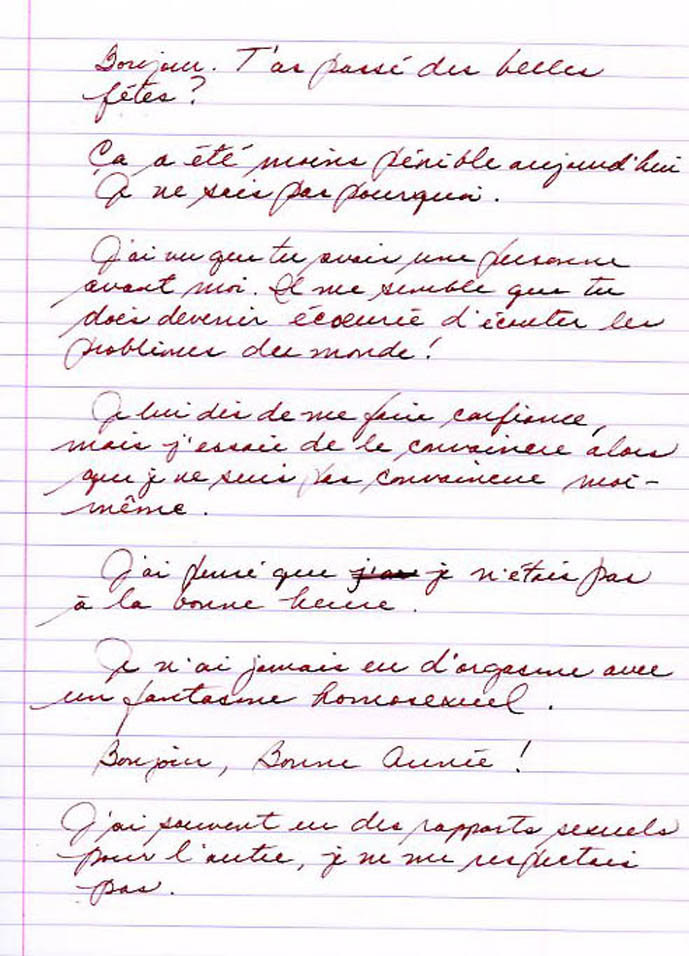 Bonjour. T'as passé des belles
fêtes?
Ça a été moins pénible aujourd'hui
Je ne sais pas pourquoi.
J'ai vu que tu avais une personne
avant moi. Il me semble que tu
dois devenir écoeurée d'écouter les
problèmes du monde!
Je lui dis de me faire confiance,
mais j'essaie de le convaincre alors
que je ne suis pas convaincue moi-
même.
J'ai pensé que j'av je n'étais pas
à la bonne heure.
Je n'ai jamais eu d'orgasme avec
un fantasme homosexuel.
Bonjour, Bonne Année!
J'ai souvent eu des rapports sexuels
pour l'autre, je ne me respectais
pas.